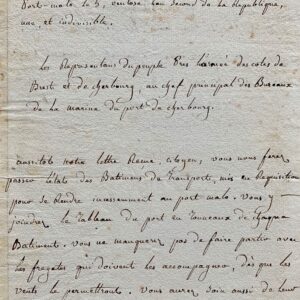 Port-malo le 5, ventose l'an second de la Republique,
une et indivisible.
Les Representans du peuple Près les cotes de
Brest et de cherbourg, au chef principal des Bureaux
de la marine du port de cherbourg.
aussitot notre lettre Reçue, citoyen, vous nous ferez
passer l'état des Batimens de Transports, mis en Requisition
pour se Rendre incessamment au port malo. Vous y
joindrez le Tableau du port en Tonneaux de chaque
Batiment. vous ne manquerez pas de faire partir avec
les fregates qui doivent les accompagner, dès que les
vents le permettront. Vous aurez soin aussi de leur